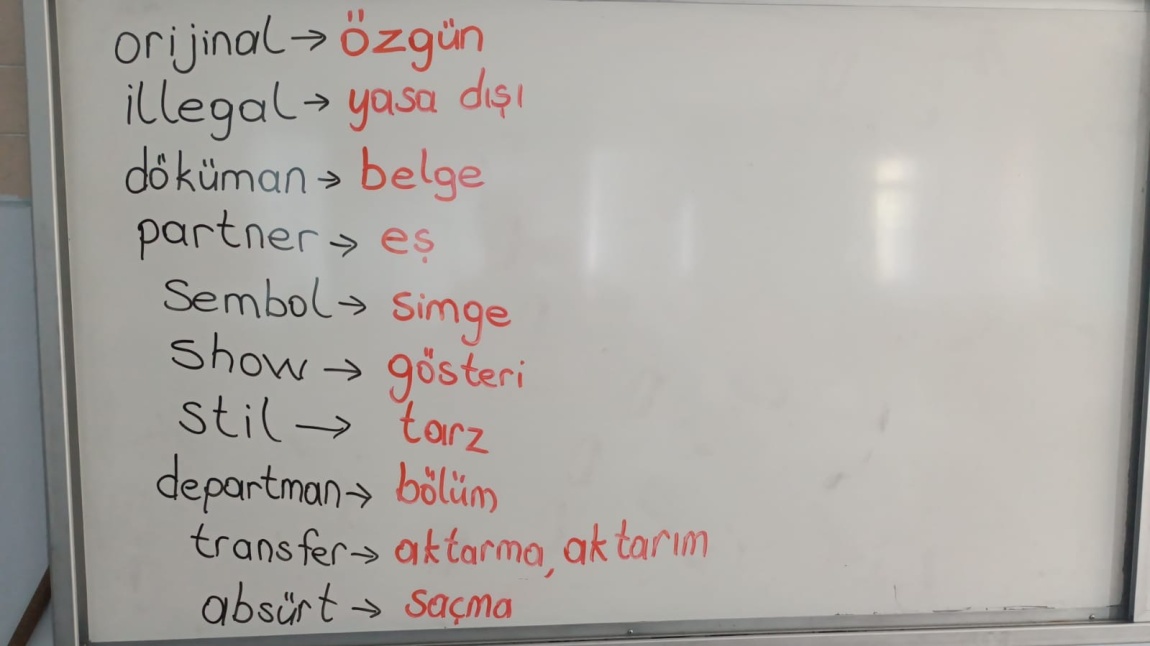 orijinal → özgün
illegal → yasa dışı
döküman → belge
partner → eş
Sembol → simge
show → gösteri
stil → tarz
departman → bölüm
transfer → aktarma, aktarım
absürt → saçma